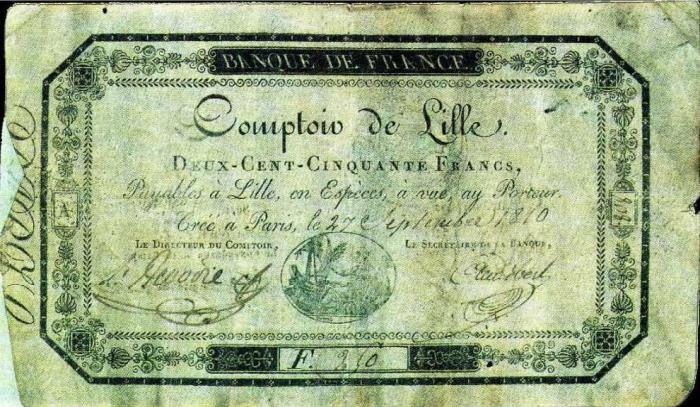 BANQUE DE FRANCE
Comptoir de Lille.
DEUX-CENT-CINQUANTE FRANCS,
Payables à Lille, en Espèces, à vue, au Porteur.
Créé à Paris, le 27 September 1810
LE DIRECTEUR DU COMPTOIR,
LE SECRÉTAIRE DE LA BANQUE,
A.
F. 250